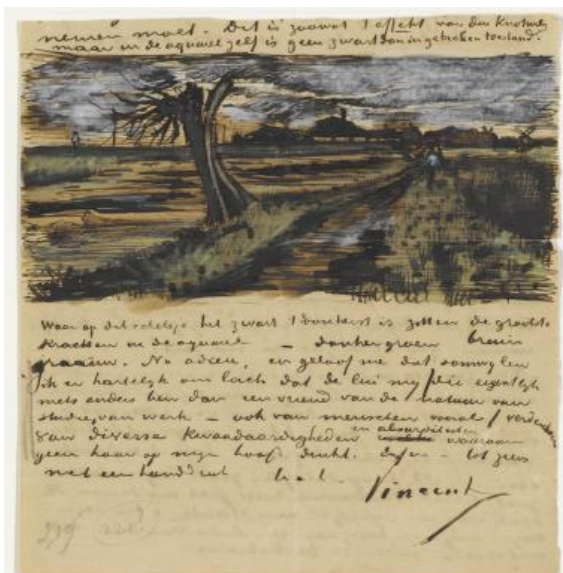 nemen moet. Dit is zoowat 't effekt van den Knotwilg
maar in de aquarel zelf is geen zwart dan in gebroken toestand.
Waar op dit schetsje het zwart 't donkerst is zitten de grootste
krachten in de aquarel – donkergroen bruin
graauw. Nu adieu, en geloof me dat somwijlen
ik er hartelijk om lach dat de lui mij /die eigentlijk
niets anders ben dan een vriend van de natuur van
studie, van werk – ook van menschen vooral/ verdenken
van diverse kwaadaardigheden en absurditeiten waaraan
geen haar op mijn hoofd denkt. Enfin – tot ziens
met een handdruk t. à t.
Vincent
229